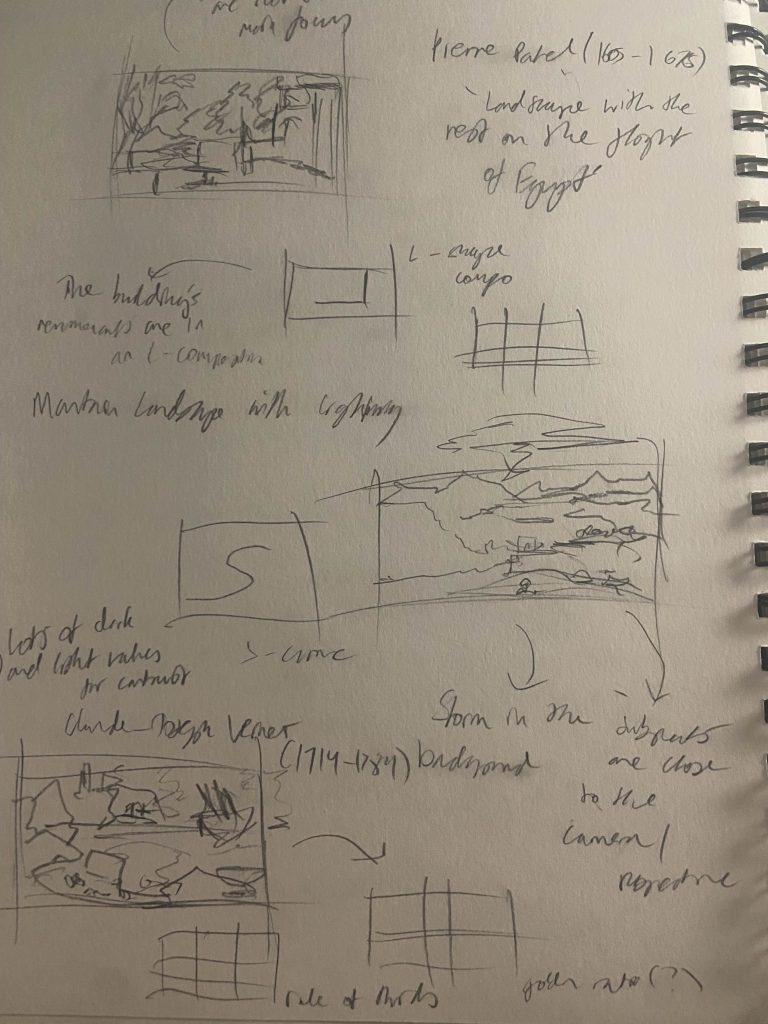 are
more focus
Pierre Patel (1605-1675)
'Landscape with the
rest on the flight
of Egypt'
L-shape
compo
The building's
remnants are in
an L-composition
Landscape with Lightning
S-curve
Lots of dark
and light values
for contrast
Claude-Joseph Vernet
(1714-1789)
Storm in the
background
subjects
are close
to the
camera/
perspective
rule of thirds
golden ratio (?)